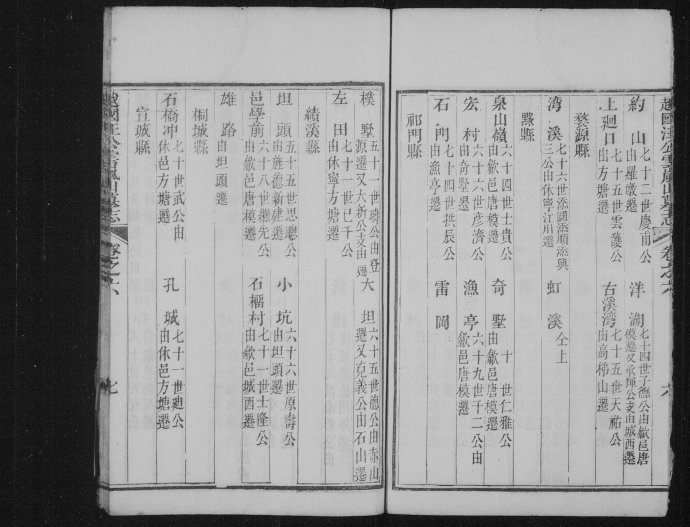 越國汪公雲嵐山墓志 卷之六 六
約山 七十二世慶甫公由羅墩遷 洋湖 七十四世子應公由歙邑唐模遷又承輝公支由城西遷
上廻口 七十五世雲護公由方塘遷 右溪灣 七十五世天祐公由高梯山遷
婺源縣
灣溪 七十六世添調添順添興三公由休寧江川遷 虹溪 仝上
黟縣
泉山嶺 六十四世士貴公由歙邑唐模遷 奇墅 十世仁雅公由歙邑唐模遷
宏村 六十六世彥濟公由奇墅遷 漁亭 六十九世千二公由歙邑唐模遷
石門 七十四世拱辰公由漁亭遷 雷岡
祁門縣
樸墅 五十一世 公由登源遷又大新公支由 遷 大坦 六十五世德公由赤山遷又克義公由石山遷
左田 七十一世已千公由休寧方塘遷
績溪縣
坦頭 五十五世思聰公由旌德新建遷 小坑 六十六世原壽公由坦頭遷
邑學前 六十八世繼先公由歙邑唐模遷 石櫃村 七十一世士隆公由歙邑城西遷
雄路 由坦頭遷
桐城縣
石橋冲 七十世武公由休邑方塘遷 孔城 七十一世迪公由休邑方塘遷
宣城縣
越國汪公雲嵐山墓志 卷之六 七